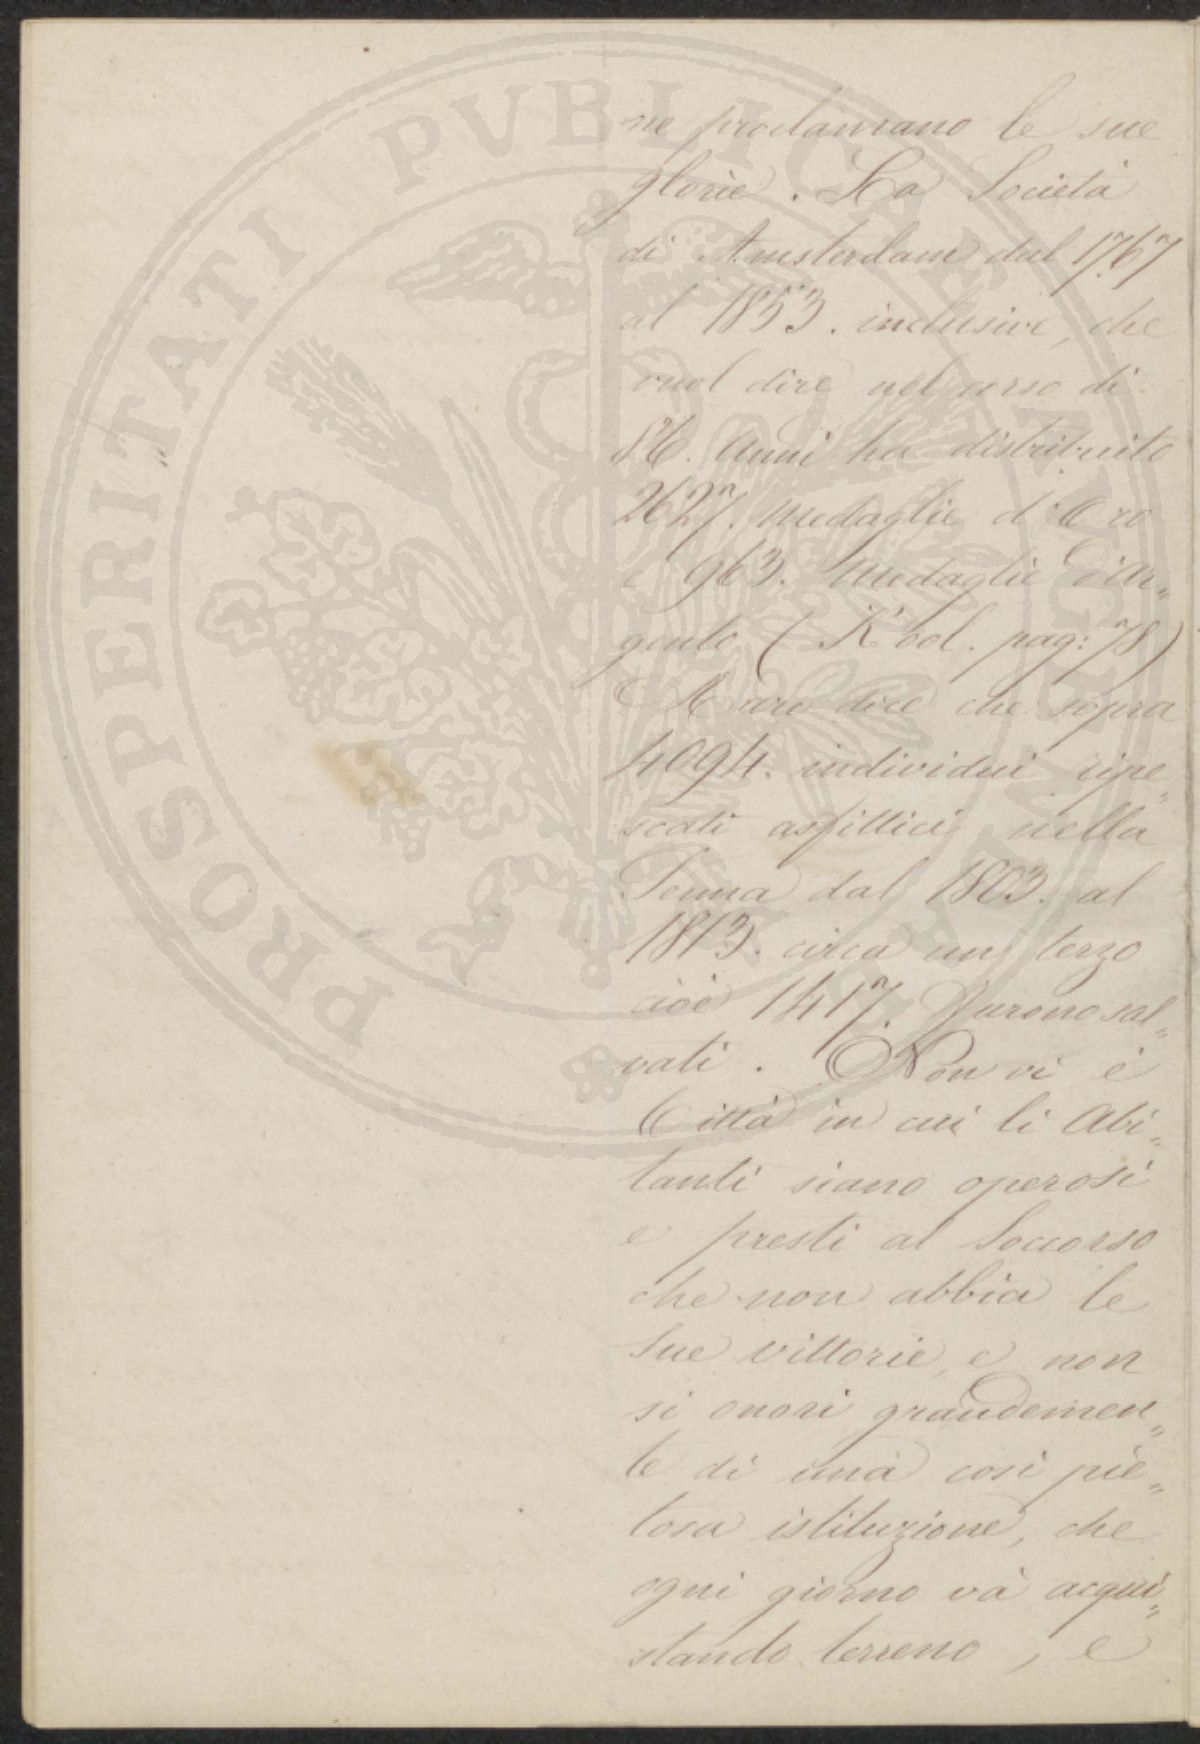 ne proclamano le sue
glorie. La Società
di Amsterdam dal 1767
al 1853. inclusive, che
vuol dire nel corso di
86. Anni ha distribuito
2627. Medaglie d'Oro
e 963. Medaglie d'Ar„
gento ( Kool. pag: 78)
Marc dice che sopra
4094. individui ripe„
scati asfittici nella
Senna dal 1803. al
1813. circa un terzo
cioè 1417. furono sal„
vati. Non vi è
Città in cui li Abi„
tanti siano operosi
e presti al Soccorso
che non abbia le
sue vittorie, e non
si onori grandemen„
te di una così pie„
tosa istituzione, che
ogni giorno và acqui„
stando terreno, e
PROSPERITATI PVBLICAE AVGENDAE